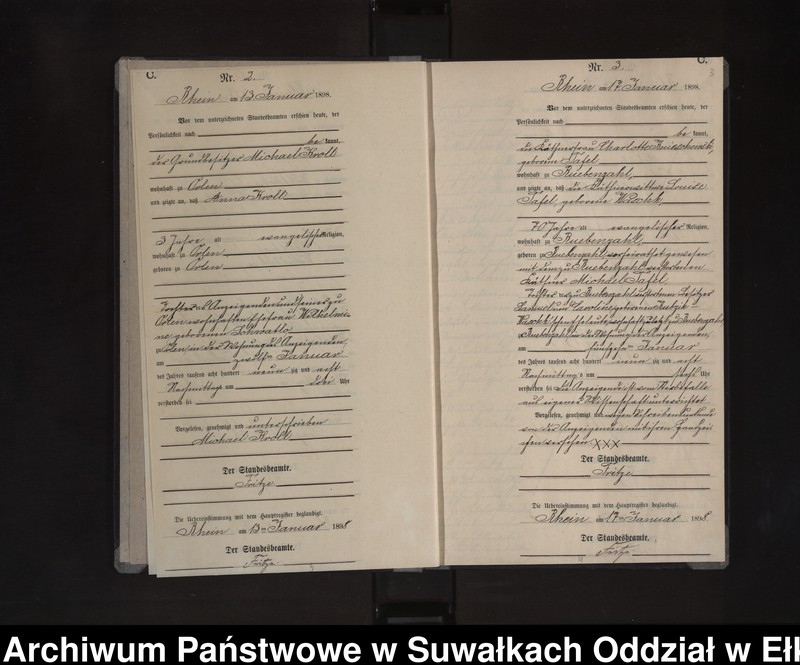 C.
Nr. 2.
Rhein am 13 Januar 1898.
Vor dem unterzeichneten Standesbeamten erschien heute, der
Persönlichkeit nach
be kannt,
der Grundbesitzer Michael Kroll
wohnhaft zu Orlen
und zeigte an, daß Anna Kroll
3 Jahre alt evangelischer Religion,
wohnhaft zu Orlen
geboren zu Orlen
Tochter des Anzeigenden und seiner zu
Orlen wohnhaften Ehefrau Wilhelmi-
ne geborenen
zu Orlen, in der Wohnung des Anzeigenden,
am zwölften Januar
des Jahres tausend acht hundert neun zig und acht
Nachmittags um drei Uhr
verstorben sei
Vorgelesen, genehmigt und unterschrieben
Michael Kroll
Der Standesbeamte.
Fritze
Die Uebereinstimmung mit dem Hauptregister beglaubigt.
Rhein am 13ten Januar 1898
Der Standesbeamte.
Fritze
C.
Nr. 3.
Rhein am 17 Januar 1898.
Vor dem unterzeichneten Standesbeamten erschien heute, der
Persönlichkeit nach
be kannt,
die Käthnerfrau Charlotte
geborene Tafel
wohnhaft zu Ruebenzahl,
und zeigte an, daß die Käthnerwittwe Louise
Tafel, geborene
70 Jahre alt evangelischer Religion,
wohnhaft zu Ruebenzahl,
geboren zu Ruebenzahl, verheirathet gewesen
mit dem zu Ruebenzahl verstorbenen
Käthner Michael Tafel,
Tochter der zu Ruebenzahl verstorbenen Besitzer
Samuel und Caroline geborenen
zu Ruebenzahl in der Wohnung der Anzeigenden,
am fünfzehnten Januar
des Jahres tausend acht hundert neun zig und acht
Nachmittags um sechs Uhr
verstorben sei die Anzeigende ist vom Sterbefalle
aus eigener Wissenschaft unterrichtet
Vorgelesen, genehmigt und wegen Schreibensunkunde
von der Anzeigenden mit ihrem Handzei-
chen versehen XXX
Der Standesbeamte.
Fritze
Die Uebereinstimmung mit dem Hauptregister beglaubigt.
Rhein am 17ten Januar 1898
Der Standesbeamte.
Fritze
Archiwum Państwowe w Suwałkach Oddział w Ełk